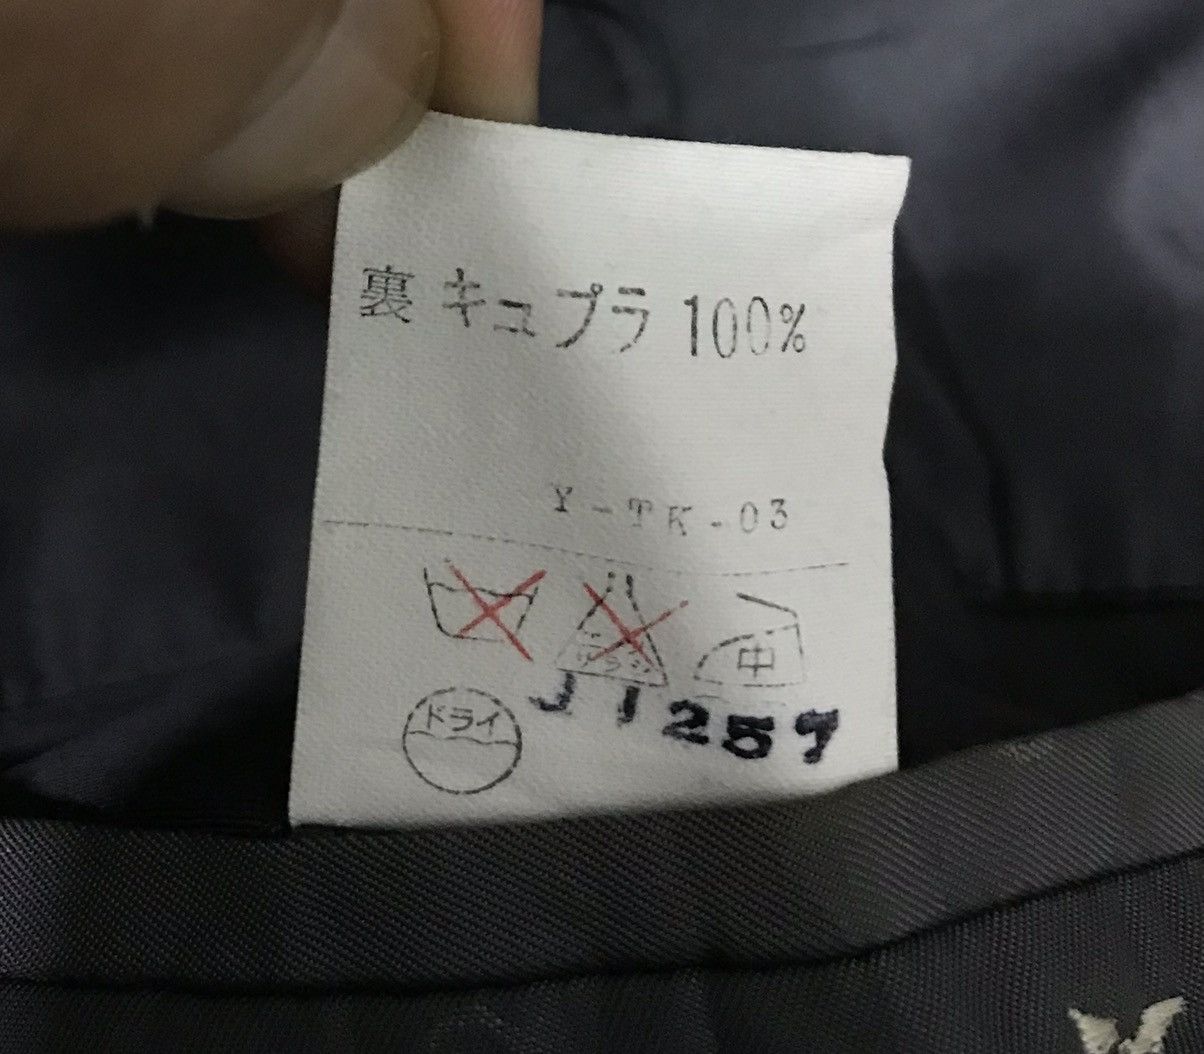 裏 キュプラ 100%
Y-TK-03
中
ドライ
J1257